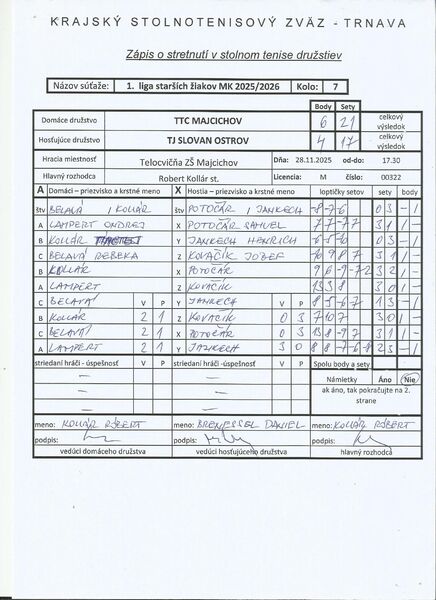 KRAJSKÝ STOLNOTENISOVÝ ZVÄZ - TRNAVA
Zápis o stretnutí v stolnom tenise družstiev
Názov súťaže: 1. liga starších žiakov MK 2025/2026 Kolo: 7
Body Sety
Domáce družstvo TTC MAJCICHOV 6 21 celkový výsledok
Hosťujúce družstvo TJ SLOVAN OSTROV 4 17 celkový výsledok
Hracia miestnosť Telocvičňa ZŠ Majcichov Dňa: 28.11.2025 od-do: 17.30
Hlavný rozhodca Robert Kollár st. Licencia: M číslo: 00322
A Domáci - priezvisko a krstné meno X Hostia - priezvisko a krstné meno loptičky setov sety body
štv BELAVÁ / KOLLÁR štv POTOČÁR / JANKECH -8 -7 -6 0 3 - 1
A LAMPERT ONDREJ X POTOČÁR SAMUEL 3 1 1 -
B KOLLÁR Y JANKECH HENRICH 0 3 - 1
C BELAVÁ REBEKA Z KOVAČIK JOZEF 3 1 1 -
B KOLLÁR X POTOČÁR 3 2 1 -
A LAMPERT Z KOVAČIK 3 0 1 -
C BELAVÁ V P Y JANKECH V P 1 3 - 1
B KOLLÁR 2 1 Z KOVAČIK 0 3 7 10 7 3 0 1 -
C BELAVÁ 2 1 X POTOČÁR 0 3 13 8 -9 7 3 1 1 -
A LAMPERT 2 1 Y JANKECH 3 0 2 3 - 1
striedaní hráči - úspešnosť V P striedaní hráči - úspešnosť V P Spolu body a sety
— — Námietky Áno Nie
— — ak áno, tak pokračujte na 2. strane
— —
meno: KOLLÁR RÓBERT meno: BREMESSEL DANIEL meno: KOLLÁR RÓBERT
podpis: podpis: podpis:
vedúci domáceho družstva vedúci hosťujúceho družstva hlavný rozhodca